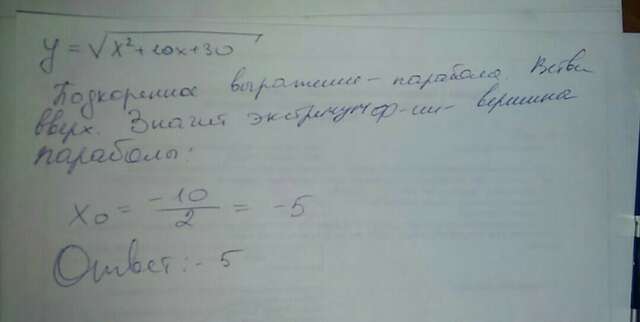 y = √x²+10x+30
Подкоренное выражение - парабола. Ветви
вверх. Значит экстремум ф-ии - вершина
параболы:
x₀ = -10/2 = -5
Ответ: -5